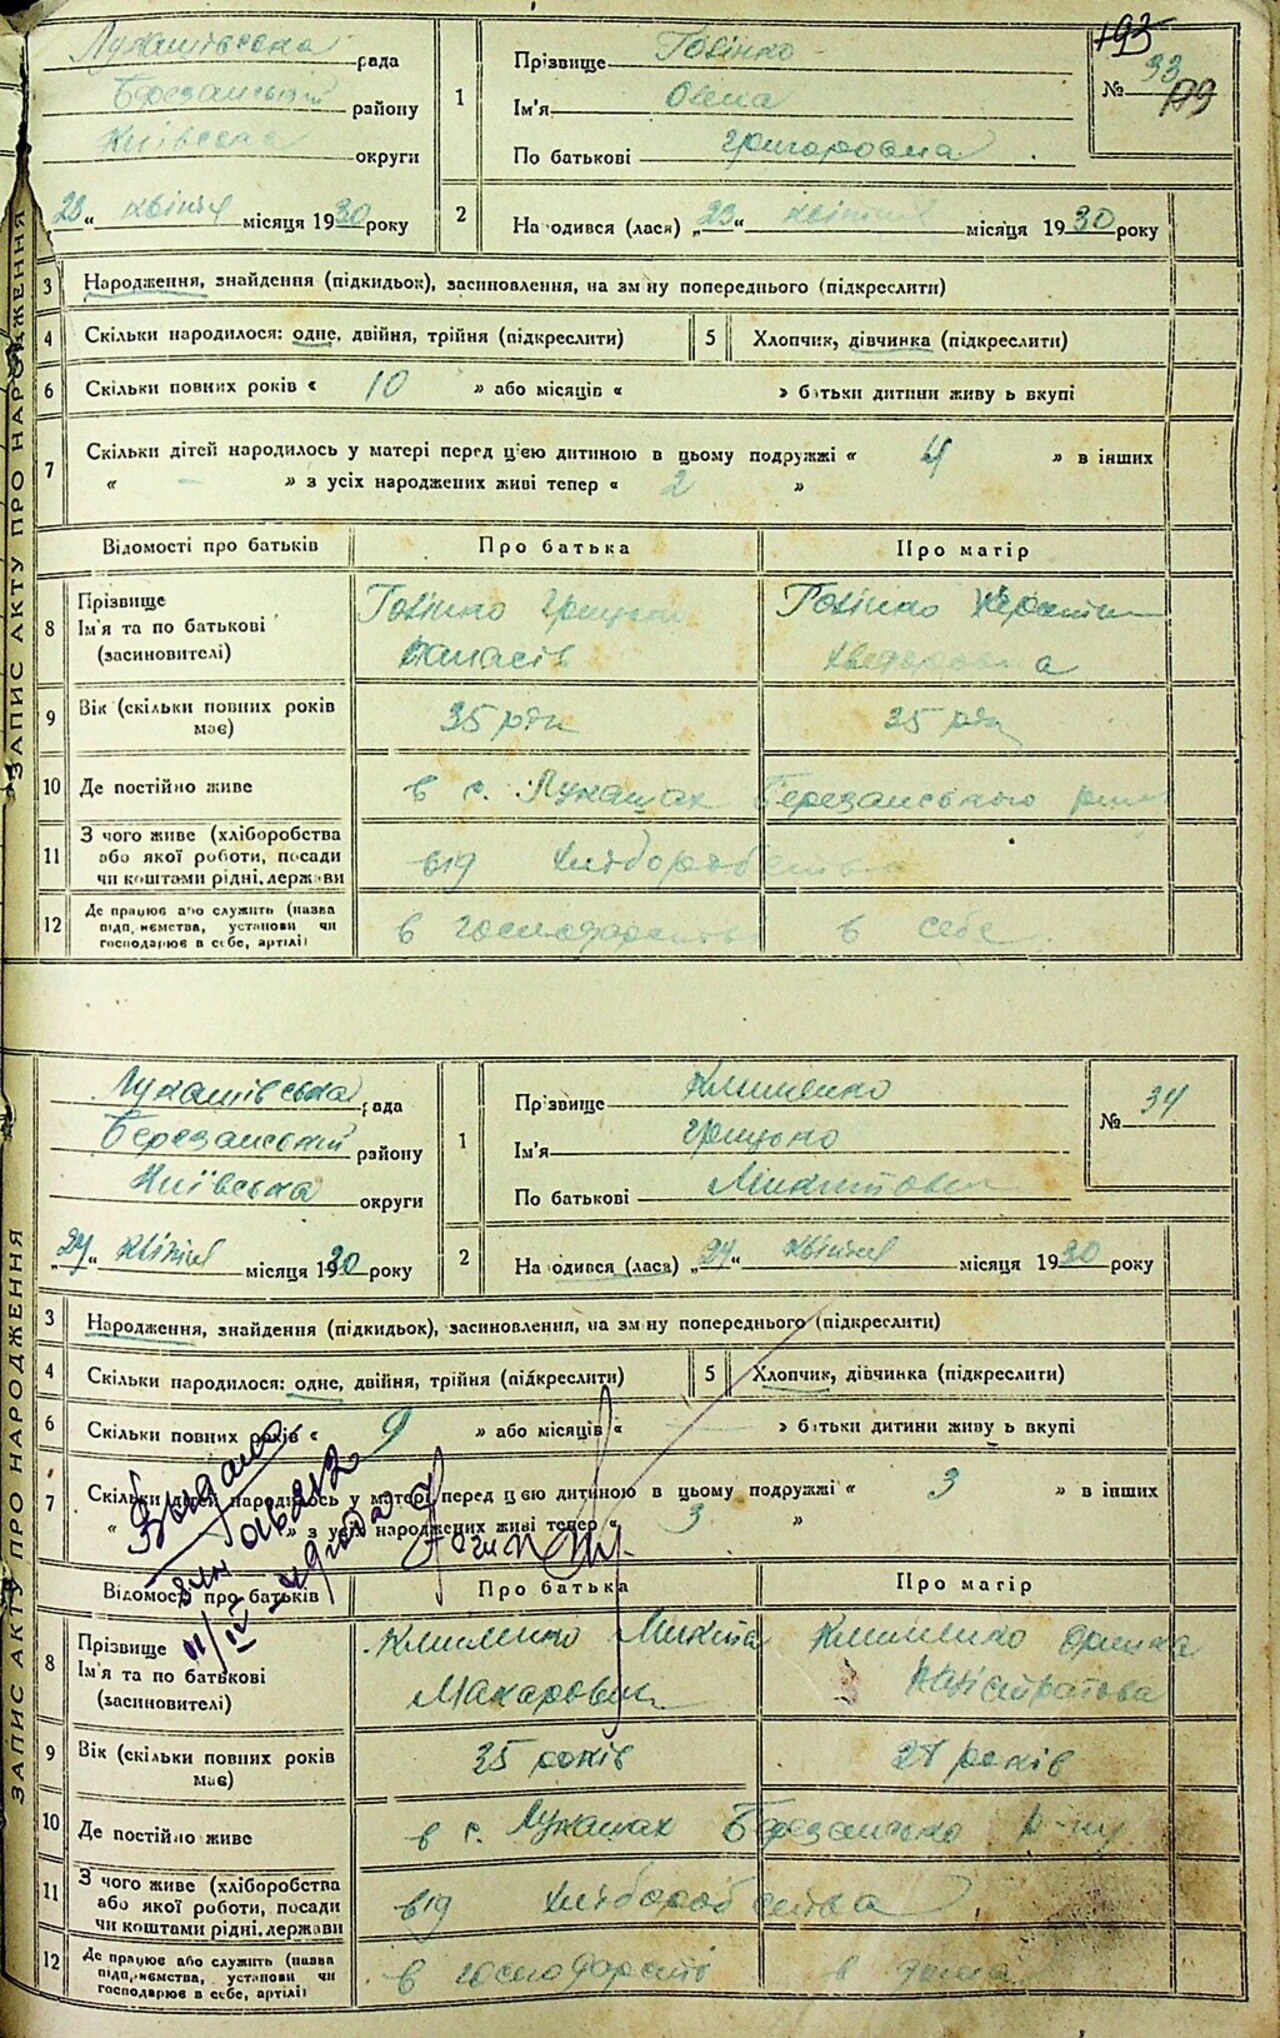 ЗАПИС АКТУ ПРО НАРОДЖЕННЯ
Лукашівська рада
Березанський району
Київська округи
23 " квітня місяця 1930 року
1
Прізвище
Ім'я Олена
По батькові Григоровна
193
№ 33
199
2
На одився (лася) „23" квітня місяця 1930 року
3 Народження, знайдення (підкидьок), засиновлення, на зм ну попереднього (підкреслити)
4 Скільки народилося: одне, двійня, трійня (підкреслити)
5 Хлопчик, дівчинка (підкреслити)
6 Скільки повних років « 10 » або місяців « » б тьки дитини живу ь вкупі
7 Скільки дітей народилось у матері перед ц'єю дитиною в цьому подружжі « 4 » в інших
« - » з усіх народжених живі тепер « 2 »
Відомості про батьків Про батька Про матір
8 Прізвище
Ім'я та по батькові
(засиновителі)
Грицько
Панасів
9 Вік (скільки повних років має)
35 35
10 Де постійно живе
в с. Лукашах Березанського
11 З чого живе (хліборобства
або якої роботи, посади
чи коштами рідні, держ ви
від хліборобства
12 Де працює або служить (назва
підп, иємства, установи чи
господарює в себе, артілі)
в господарстві в себе
ЗАПИС АКТУ ПРО НАРОДЖЕННЯ
Лукашівська рада
Березанський району
Київська округи
„24" квітня місяця 1930 року
1
Прізвище Клименко
Ім'я Грицько
По батькові Микитович
№ 34
2
На одився (лася) „24" квітня місяця 1930 року
3 Народження, знайдення (підкидьок), засиновлення, на зм ну попереднього (підкреслити)
4 Скільки народилося: одне, двійня, трійня (підкреслити)
5 Хлопчик, дівчинка (підкреслити)
6 Скільки повних років « 9 » або місяців « - » б тьки дитини живу ь вкупі
7 Скільки дітей народилось у матері перед ц єю дитиною в цьому подружжі « 3 » в інших
« » з усіх народжених живі тепер « 3 »
Відомості про батьків Про батька Про матір
8 Прізвище
Ім'я та по батькові
(засиновителі)
Клименко Микита
Макарович
Клименко
9 Вік (скільки повних років має)
35 років років
10 Де постійно живе
в с. Лукашах Березансько р-ну
11 З чого живе (хліборобства
або якої роботи, посади
чи коштами рідні, держави
від хліборобства
12 Де працює або служить (назва
підп, иємства, установи чи
господарює в себе, артілі)
в господарстві